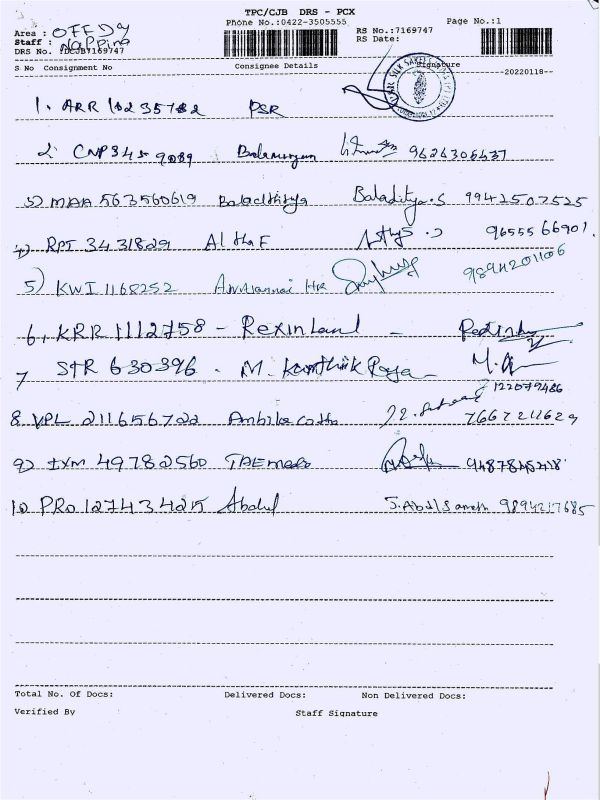 TPC/CJB DRS - PCX
Phone No.:0422-3505555 Page No.:1
Area : OFF DY RS No.:7169747
Staff : Napping RS Date:
DRS No. :DCJB7169747
S No Consignment No Consignee Details Signature
20220118
1. ARR 10235782 PSR
2. CNP345 9089 Balamurugan 9626306637
3) MAA 563560619 Baladithya Baladitya.S 9942507525
4) RPT 3431829 Althaf 9655566901.
5) KWI 1168252 Annamalai HR 9894201106
6, KRR 1112758 - Rexinland -
7 STR 630396 . M. Karthik Raja M.
122079486
8 VPL 211656722 Ambika 7667211629
9) IXM 49782560 9487845418
10 PRO 127434215 Abdul S. Abdul Samath 9894217685
Total No. Of Docs: Delivered Docs: Non Delivered Docs:
Verified By Staff Signature